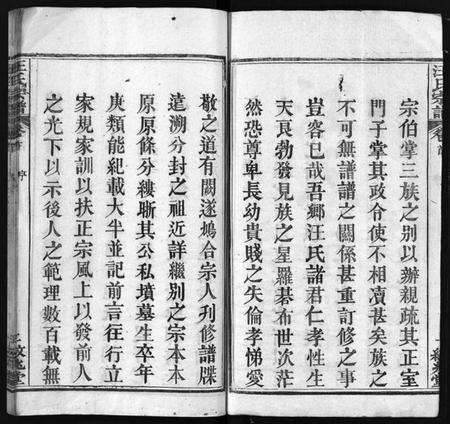 汪氏宗譜
卷首
宗伯掌三族之别以辦親疏其正室
門子掌其政令使不相瀆甚矣族之
不可無譜譜之關係甚重訂修之事
豈容已哉吾鄉汪氏諸君仁孝性生
天良勃發見族之星羅棊布世次茫
然恐尊卑長幼貴賤之失倫孝悌愛
敬之道有闕遂鳩合宗人刋修譜牒
遠溯分封之祖近詳繼别之宗本本
原原條分縷晣其公私墳墓生卒年
庚類能紀載大半並記前言往行立
家規家訓以扶正宗風上以發前人
之光下以示後人之範理數百載無
汪氏宗譜
卷首
序